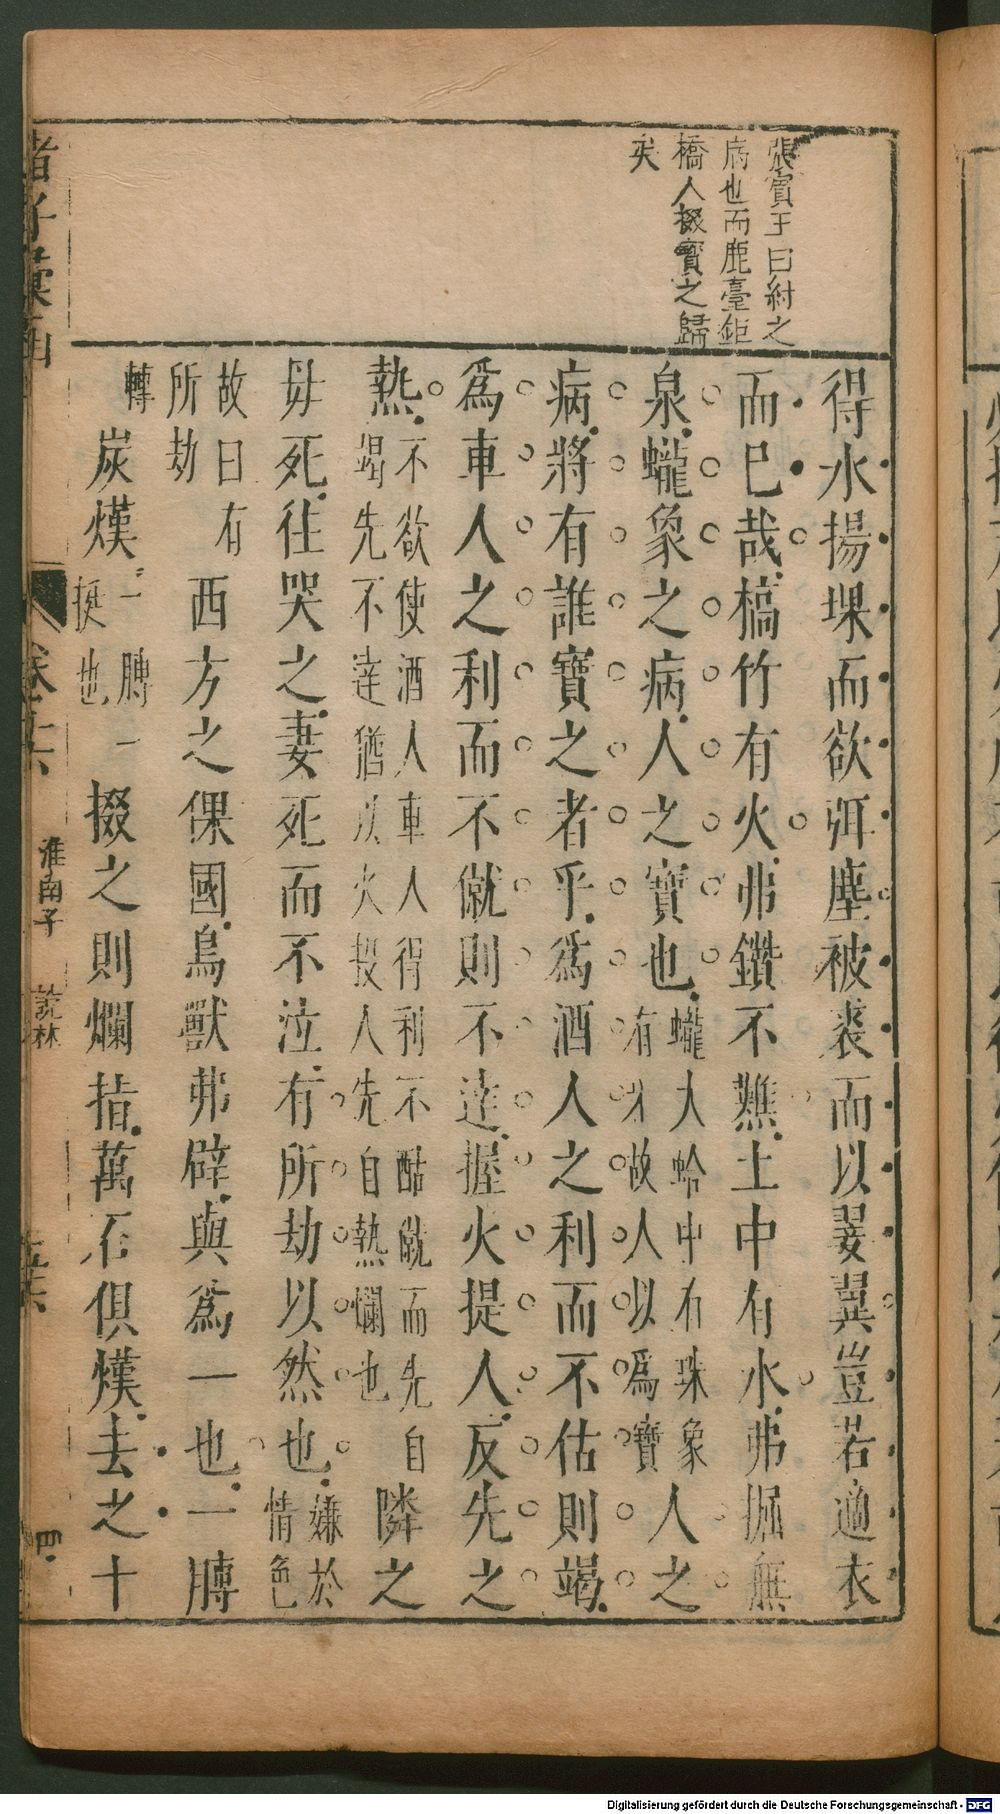 張賓王曰紂之
病也而鹿臺鉅
橋人掇寶之歸
矣
得水揚堁而欲弭塵被裘而以翣翼豈若適衣
而巳哉槁竹有火弗鑽不㸐土中有水弗掘無
泉蠬象之病人之寶也蠬大蛤中有珠象有牙故人以爲寶人之
病將有誰寶之者乎爲酒人之利而不估則竭
爲車人之利而不僦則不達握火提人反先之
熱不欲使酒人車人得利不酤僦而先自竭先不達猶以火投人先自熱爛也隣之
毋死往哭之妻死而不泣有所劫以然也嫌於情色
故曰有所劫西方之倮國鳥獸弗辟與爲一也一膞
轉炭熯一膞一挻也掇之則爛指萬石俱熯去之十
諸子彙函
卷十六
淮南子
說林
四
Digitalisierung gefördert durch die Deutsche Forschungsgemeinschaft - DFG